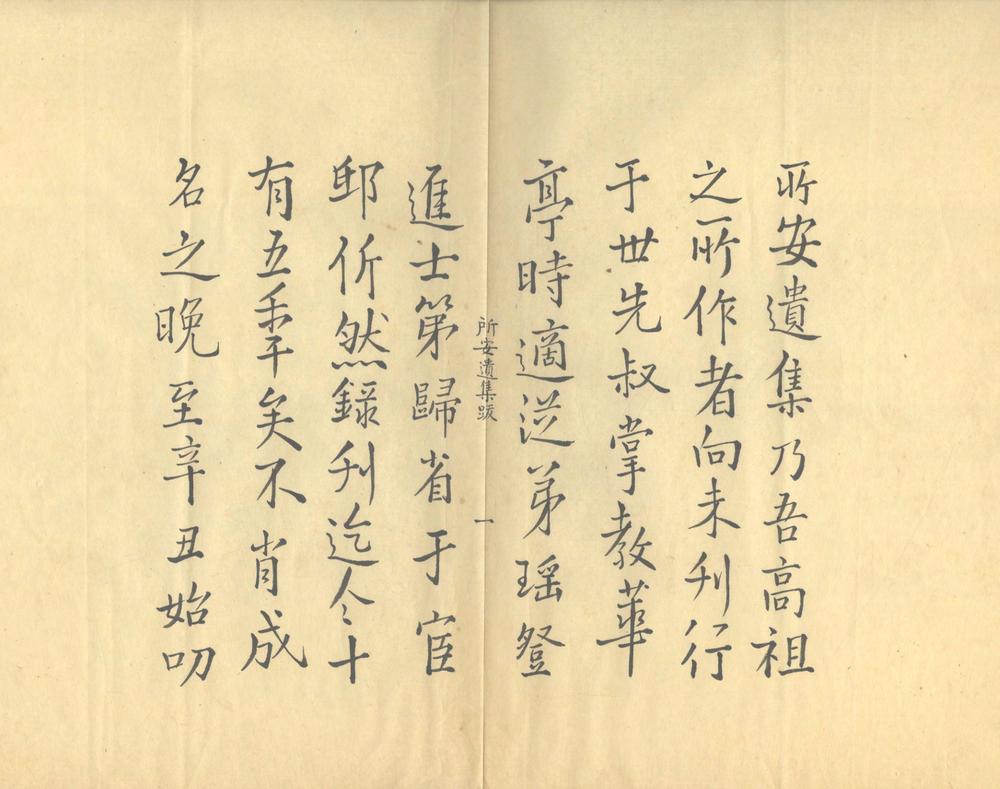 所安遺集乃吾高祖
之所作者向未刊行
于世先叔掌教華
亭時適従弟瑶登
所安遺集跋
一
進士第歸省于宦
邸忻然録刊迄今十
有五年矣不肖成
名之晚至辛丑始叨